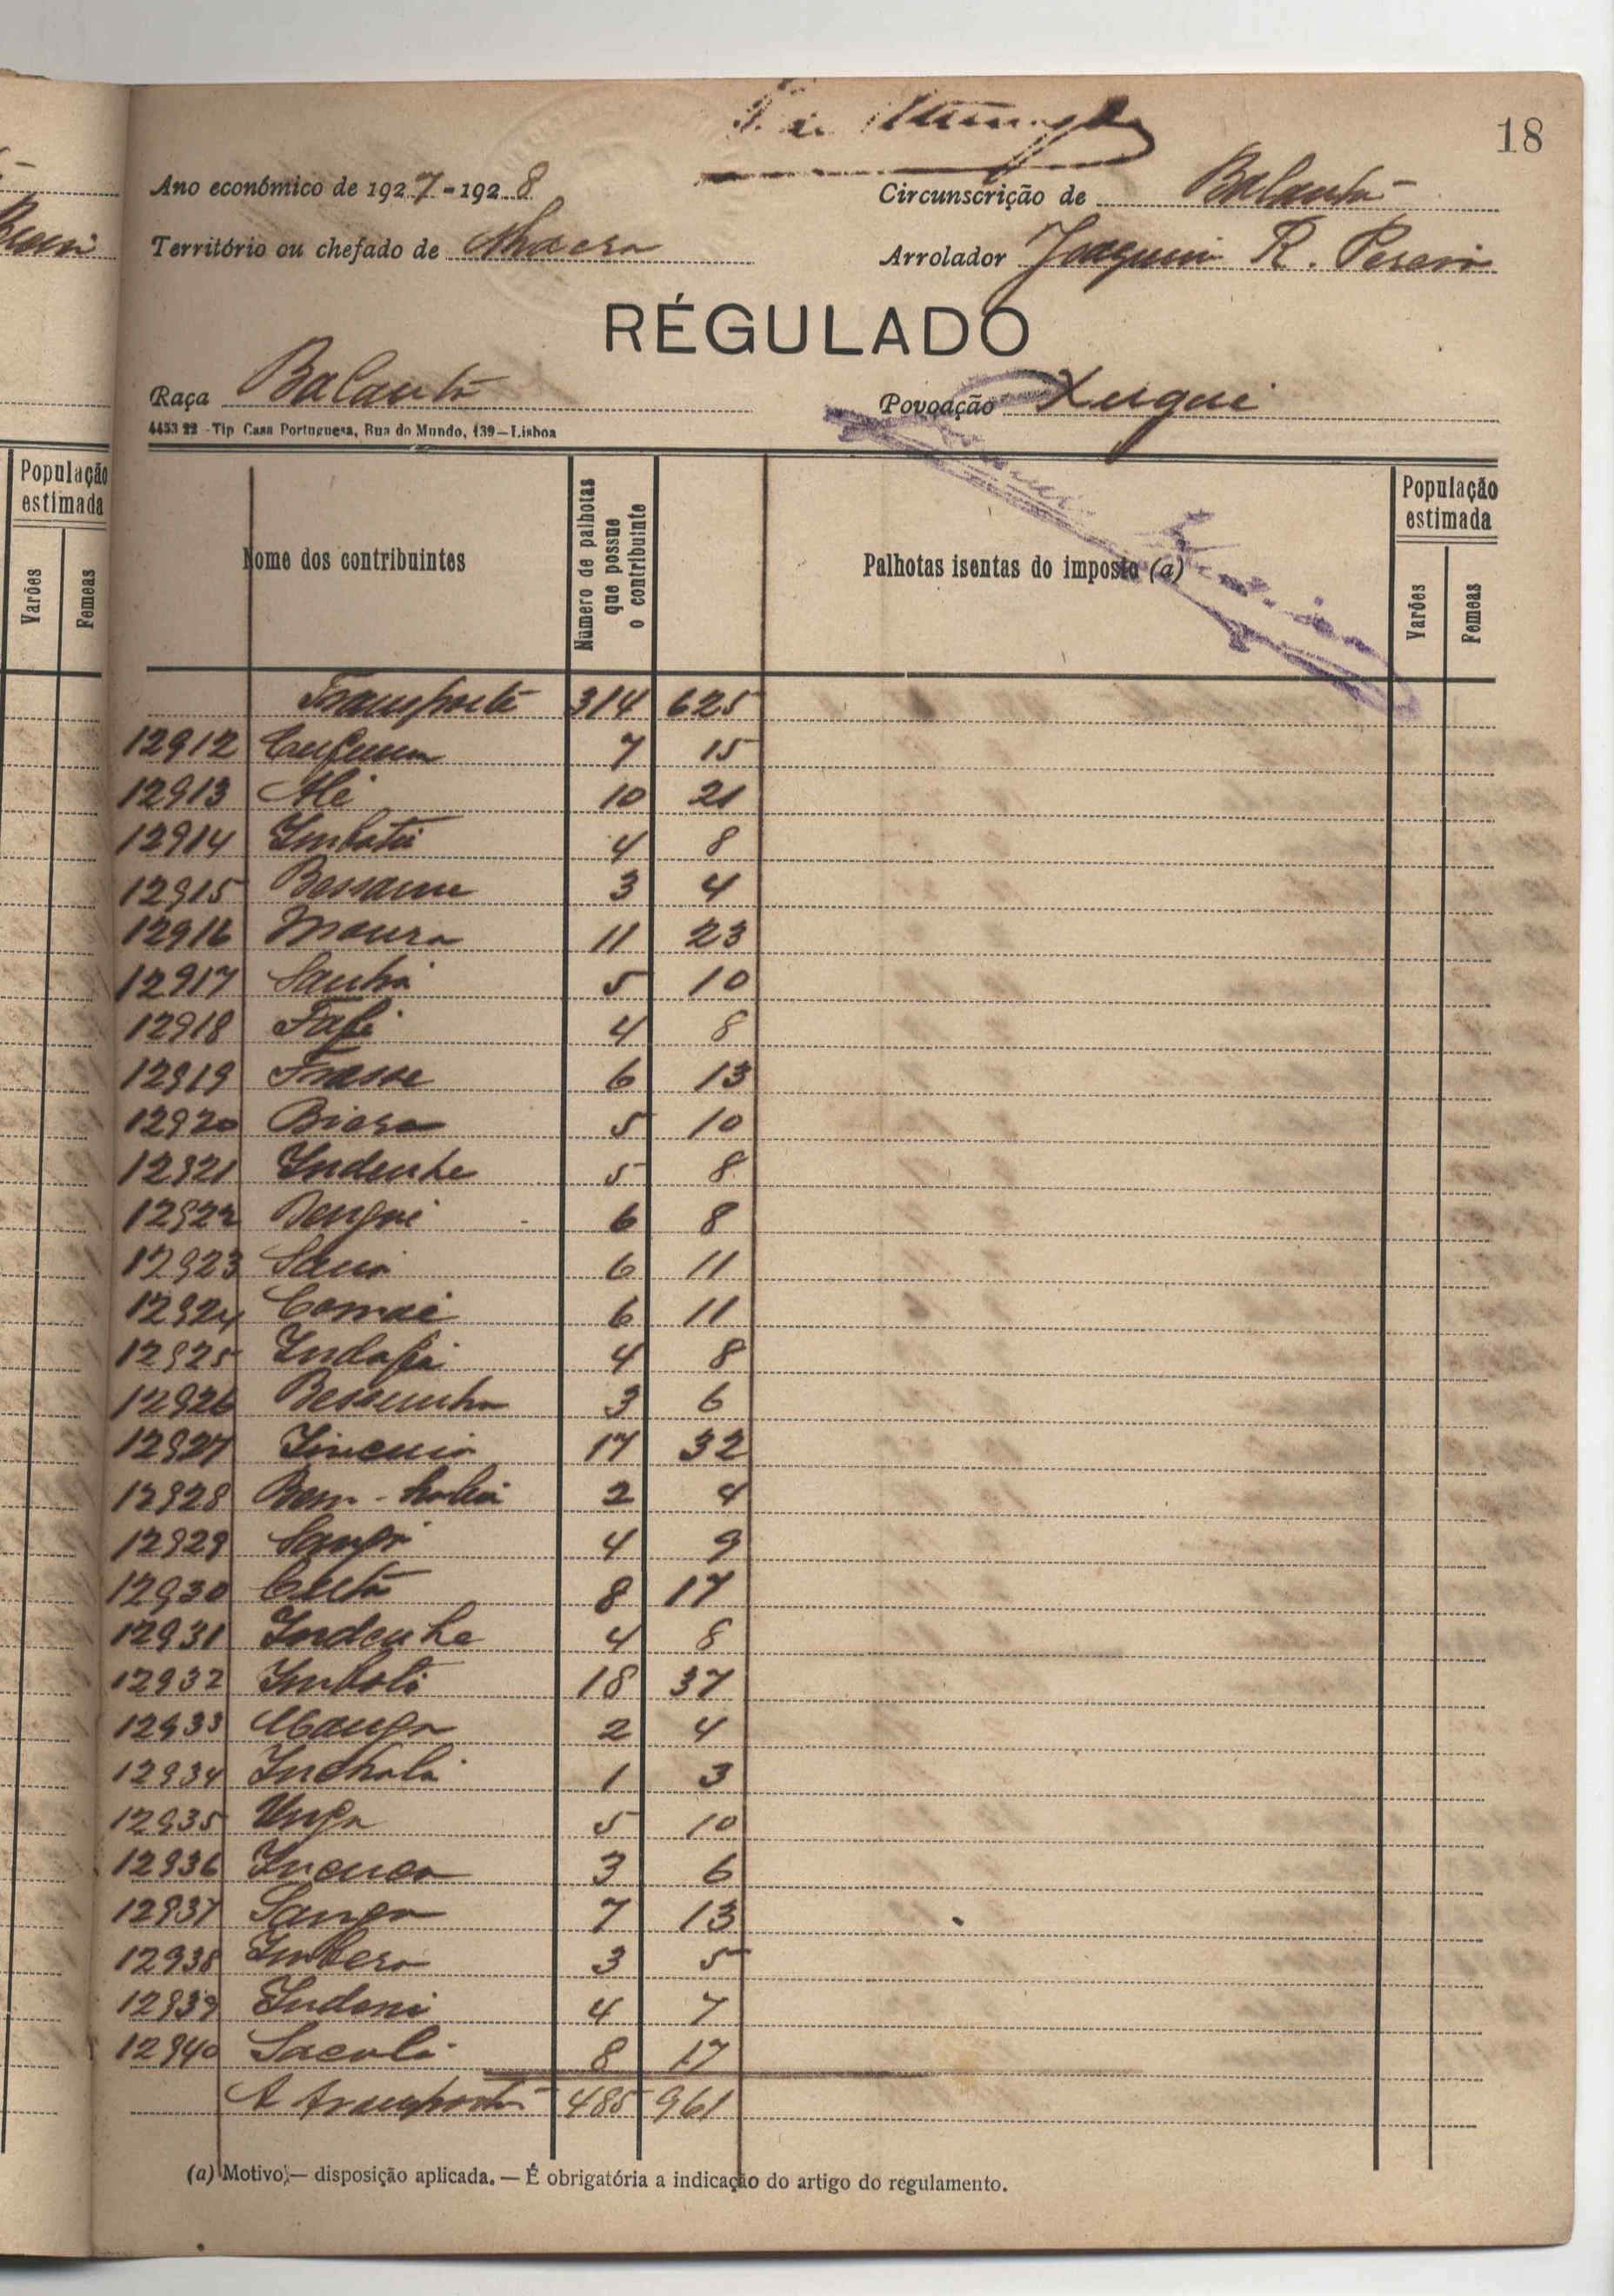 18
Ano económico de 1927-1928 Circunscrição de Balanta
Território ou chefado de Arrolador Joaquim R. Pereira
RÉGULADO
Raça Balanta Povoação Xugui
4453 22 -Tip Casa Portuguesa, Rua do Mundo, 139—Lisboa
População estimada
Varões Femeas
Nome dos contribuintes Número de palhotas que possue o contribuinte Palhotas isentas do imposto (a) População estimada
Varões Femeas
Transporte 314 625
12912 7 15
12913 Alé 10 21
12914 Imbatu 4 8
12915 Bessame 3 4
12916 Moura 11 23
12917 Sanha 5 10
12918 Fafe 4 8
12919 Frasse 6 13
12920 Biosa 5 10
12921 Indenhe 5 8
12922 Bengui 6 8
12923 6 11
12924 Comae 6 11
12925 Indafa 4 8
12926 Bessunha 3 6
12927 17 32
12928 Bem- 2 4
12929 Sanfo 4 9
12930 8 17
12931 Indenhe 4 8
12932 Imboti 18 37
12933 Manga 2 4
12934 Inchala 1 3
12935 Unga 5 10
12936 Incuca 3 6
12937 Sanga 7 13
12938 Imbera 3 5
12939 Indani 4 7
12940 Saculi 8 17
A transportar 485 961
(a) Motivo,— disposição aplicada. — É obrigatória a indicação do artigo do regulamento.